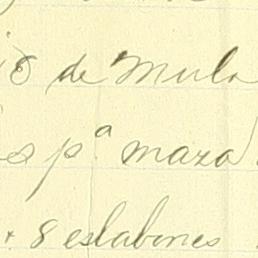 de Mula
s pª maza
8 eslabones